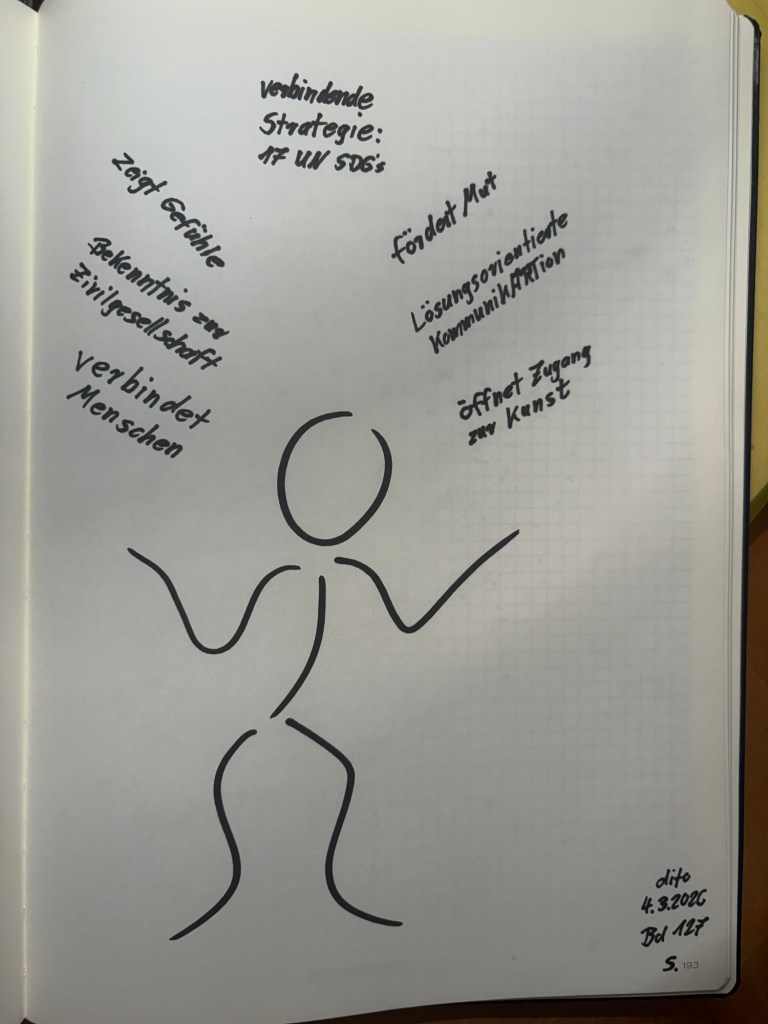 verbindende
Strategie:
17 UN SDG's
zeigt Gefühle
Bekenntnis zur
Zivilgesellschaft
verbindet
Menschen
fördert Mut
Lösungsorientierte
KommuniKARTion
öffnet Zugang
zur Kunst
dito
4.3.2026
Bd 127
S. 193